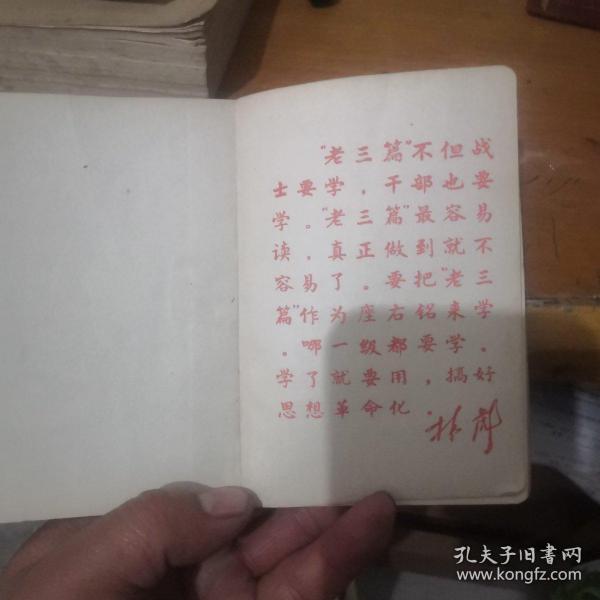 “老三篇”不但战
士要学，干部也要
学。“老三篇”最容易
读，真正做到就不
容易了。要把“老三
篇”作为座右铭来学
。哪一级都要学。
学了就要用，搞好
思想革命化。
林彪
孔夫子旧書网
www.kongfz.com